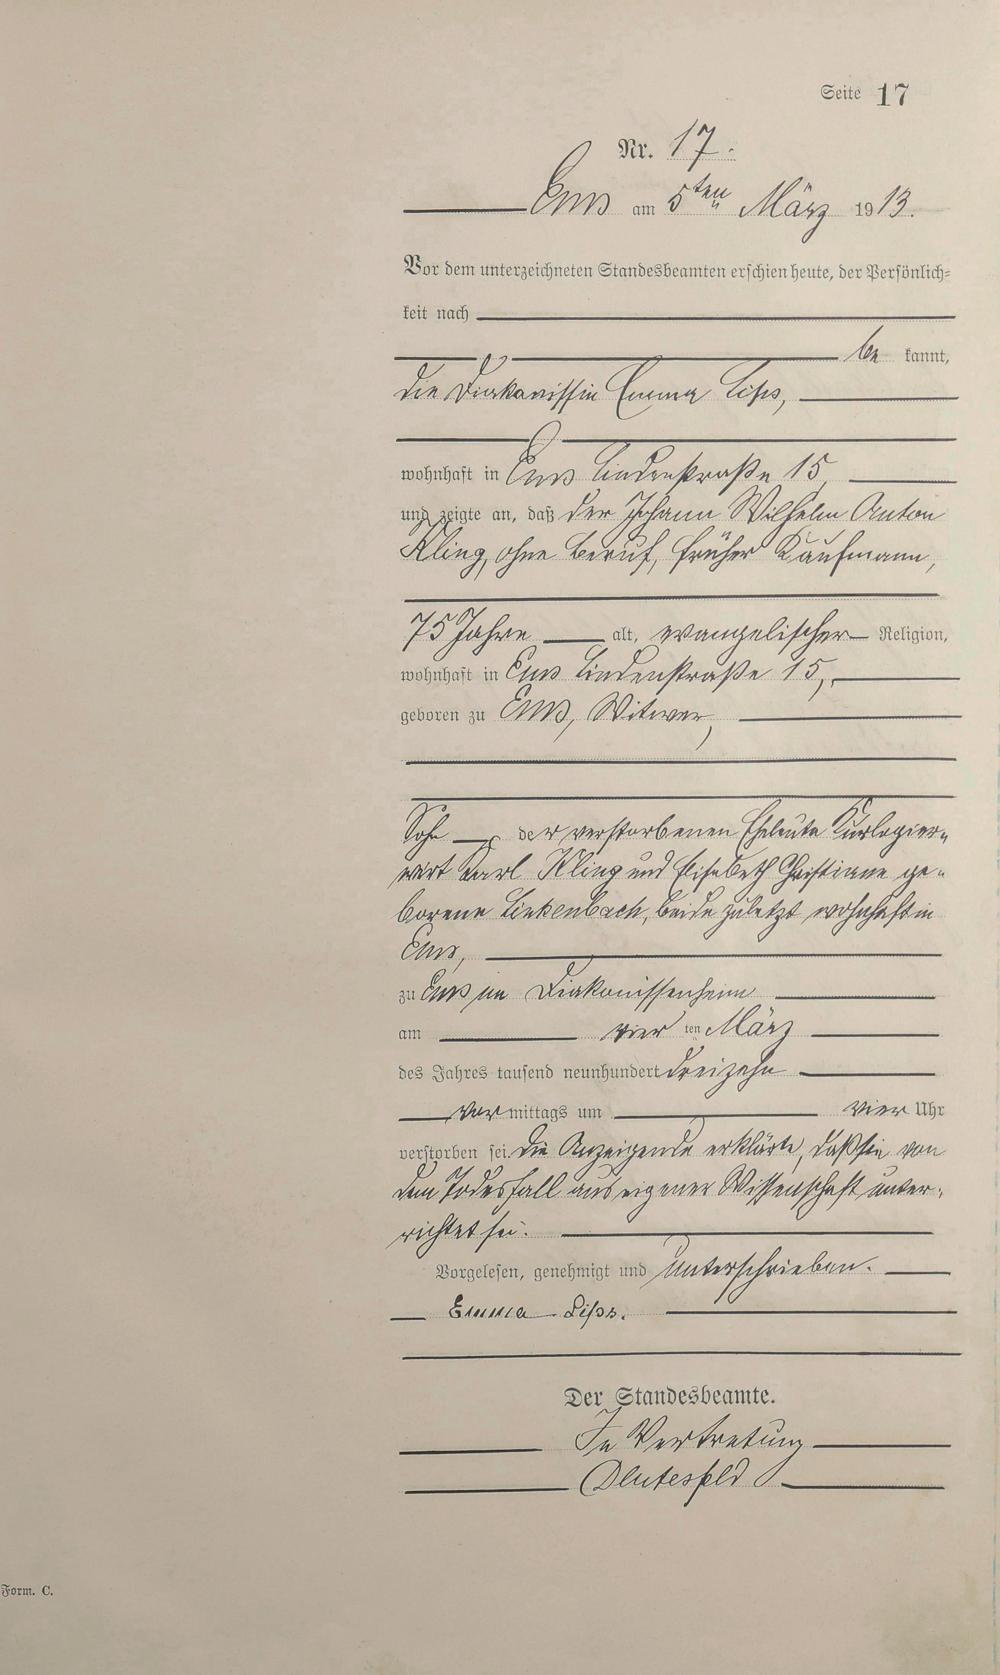 Seite 17
Nr. 17.
Ems am 5ten März 1913.
Vor dem unterzeichneten Standesbeamten erschien heute, der Persönlich-
keit nach
be kannt,
die Diakonissin Emma Lips,
wohnhaft in Ems Lindenstraße 15
und zeigte an, daß der Johann Wilhelm Anton
Kling, ohne Beruf, früher Kaufmann,
75 Jahre alt, evangelischer Religion,
wohnhaft in Ems Lindenstraße 15,
geboren zu Ems, Witwer,
Sohn der verstorbenen Eheleute Kurlogier-
wirt Karl Kling und Elisabeth Christiane ge-
borene Linkenbach, beide zuletzt wohnhaft in
Ems,
zu Ems im Diakonissenheim
am vier ten März
des Jahres tausend neunhundert dreizehn
vor mittags um vier Uhr
verstorben sei. Die Anzeigende erklärte, daß sie von
dem Todesfall aus eigener Wissenschaft unter-
richtet sei.
Vorgelesen, genehmigt und unterschrieben.
Emma Lips.
Der Standesbeamte.
In Vertretung
Form. C.